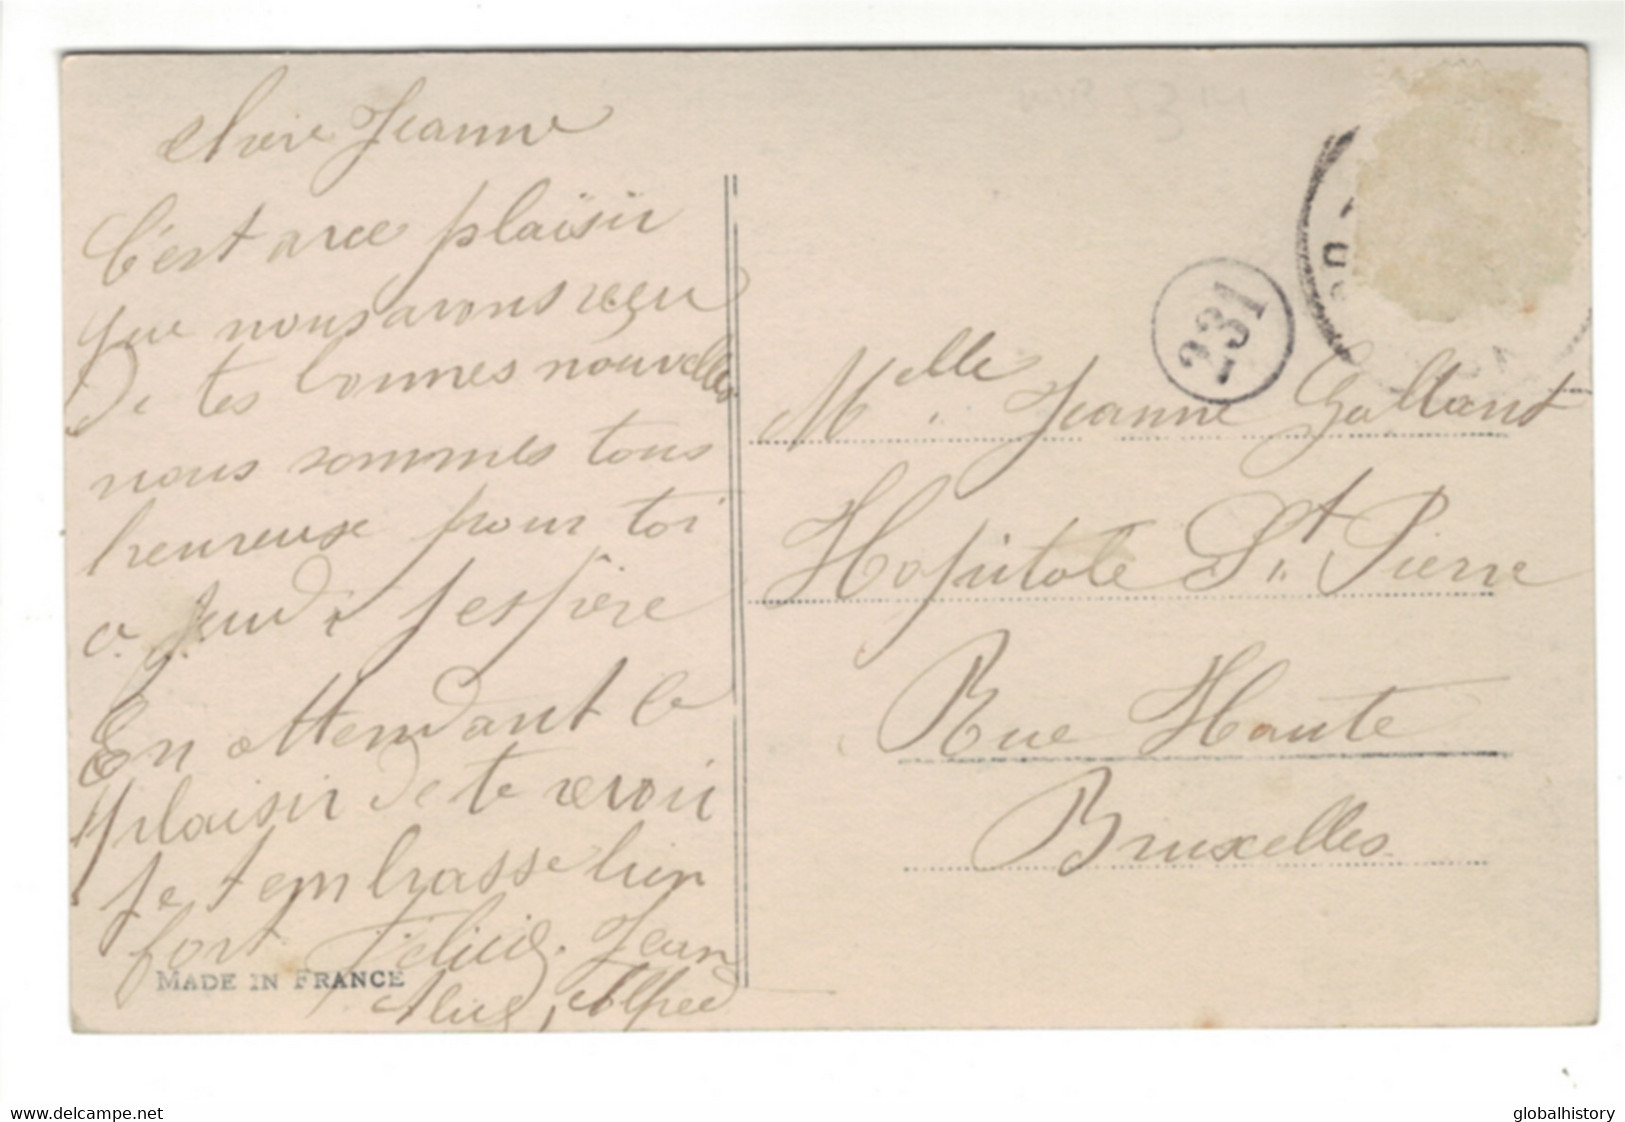 chère Jeanne
C'est avec plaisir
que nous avons reçu
de tes bonnes nouvelles
nous sommes tous
heureuse pour toi
a jeudi j espère
En attendant le
plaisir de te revoir
je t embrasse bien
fort Félicie. Jean
Alice, Alfred
MADE IN FRANCE
231
Melle Jeanne Galtant
Hopitale St Pierre
Rue Haute
Bruxelles
www.delcampe.net
globalhistory